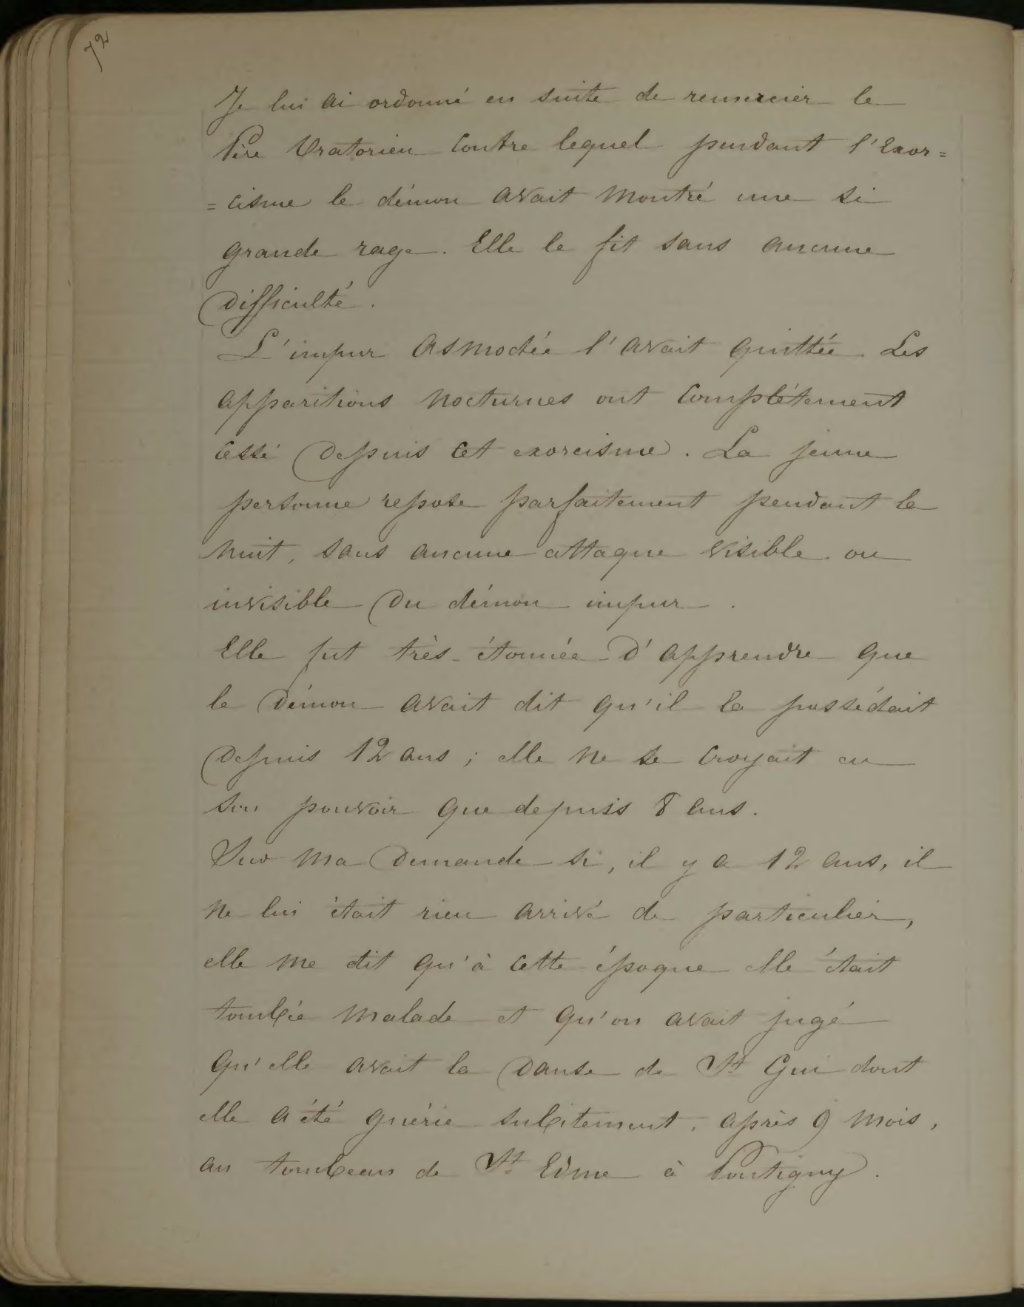 72
Je lui ai ordonné en suite de remercier le
Père Oratorien contre lequel pendant l'Exor=
=cisme le démon avait montré une si
grande rage. Elle le fit sans aucune
difficulté.
L'impur Asmodée l'avait quittée. Les
apparitions nocturnes ont complétement
cessé depuis cet exorcisme. La jeune
personne repose parfaitement pendant la
nuit, sans aucune attaque visible ou
invisible du démon impur.
Elle fut très-étonnée d'apprendre que
le démon avait dit qu'il la possédait
depuis 12 ans ; elle ne se croyait en
son pouvoir que depuis 8 ans.
Sur ma demande si, il y a 12 ans, il
ne lui était rien arrivé de particulier,
elle me dit qu'à cette époque elle était
tombée malade et qu'on avait jugé
qu'elle avait la danse de St Gui dont
elle a été guérie subitement, après 9 mois,
au tombeau de St Edme à Pontigny.